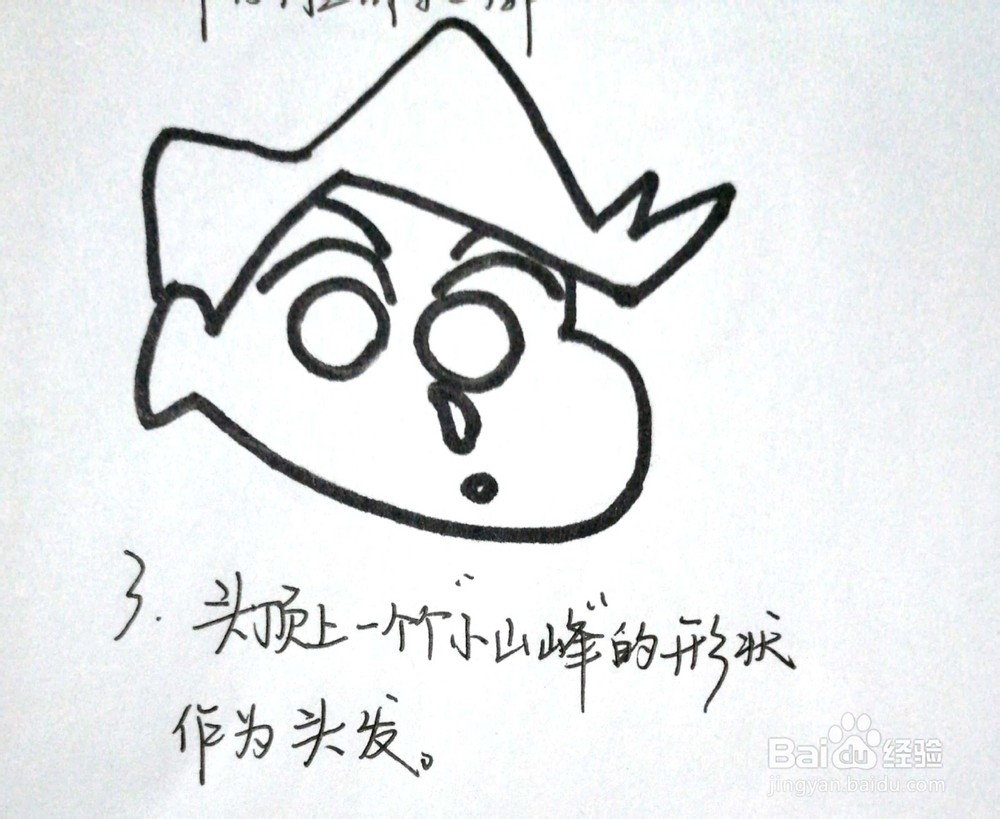 3. 头顶上一个"小山峰"的形状
作为头发。
Baidu 经验
jingyan.baidu.com